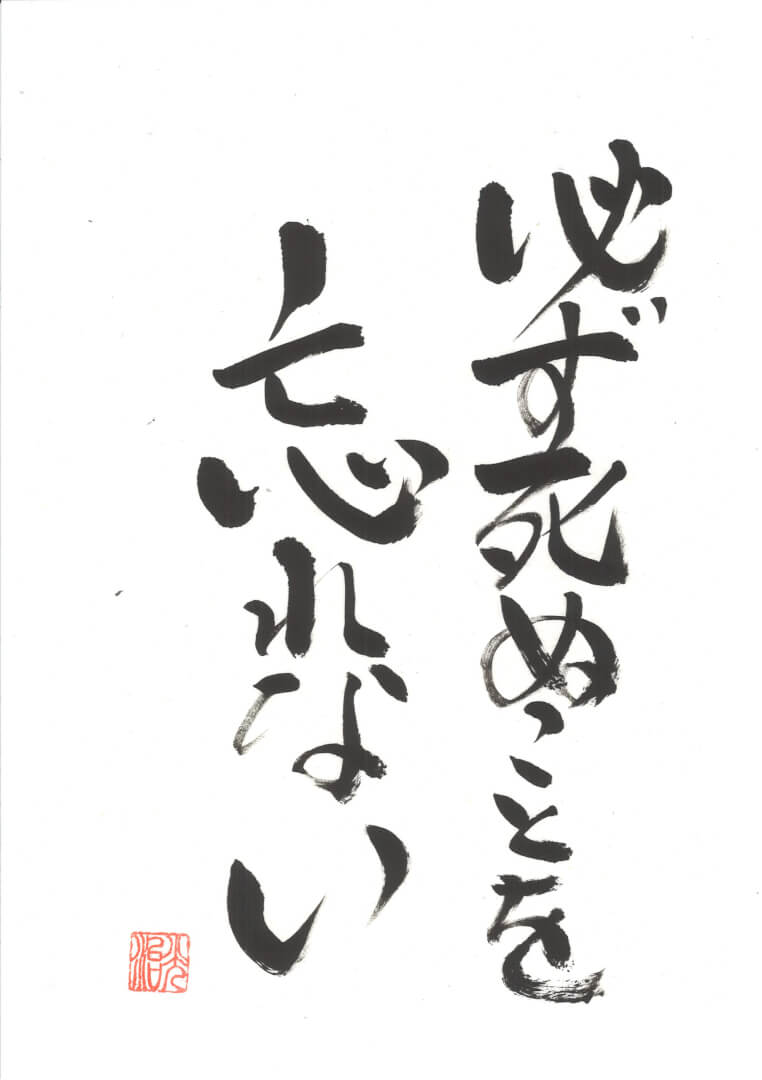 必ず死ぬことを
忘れない